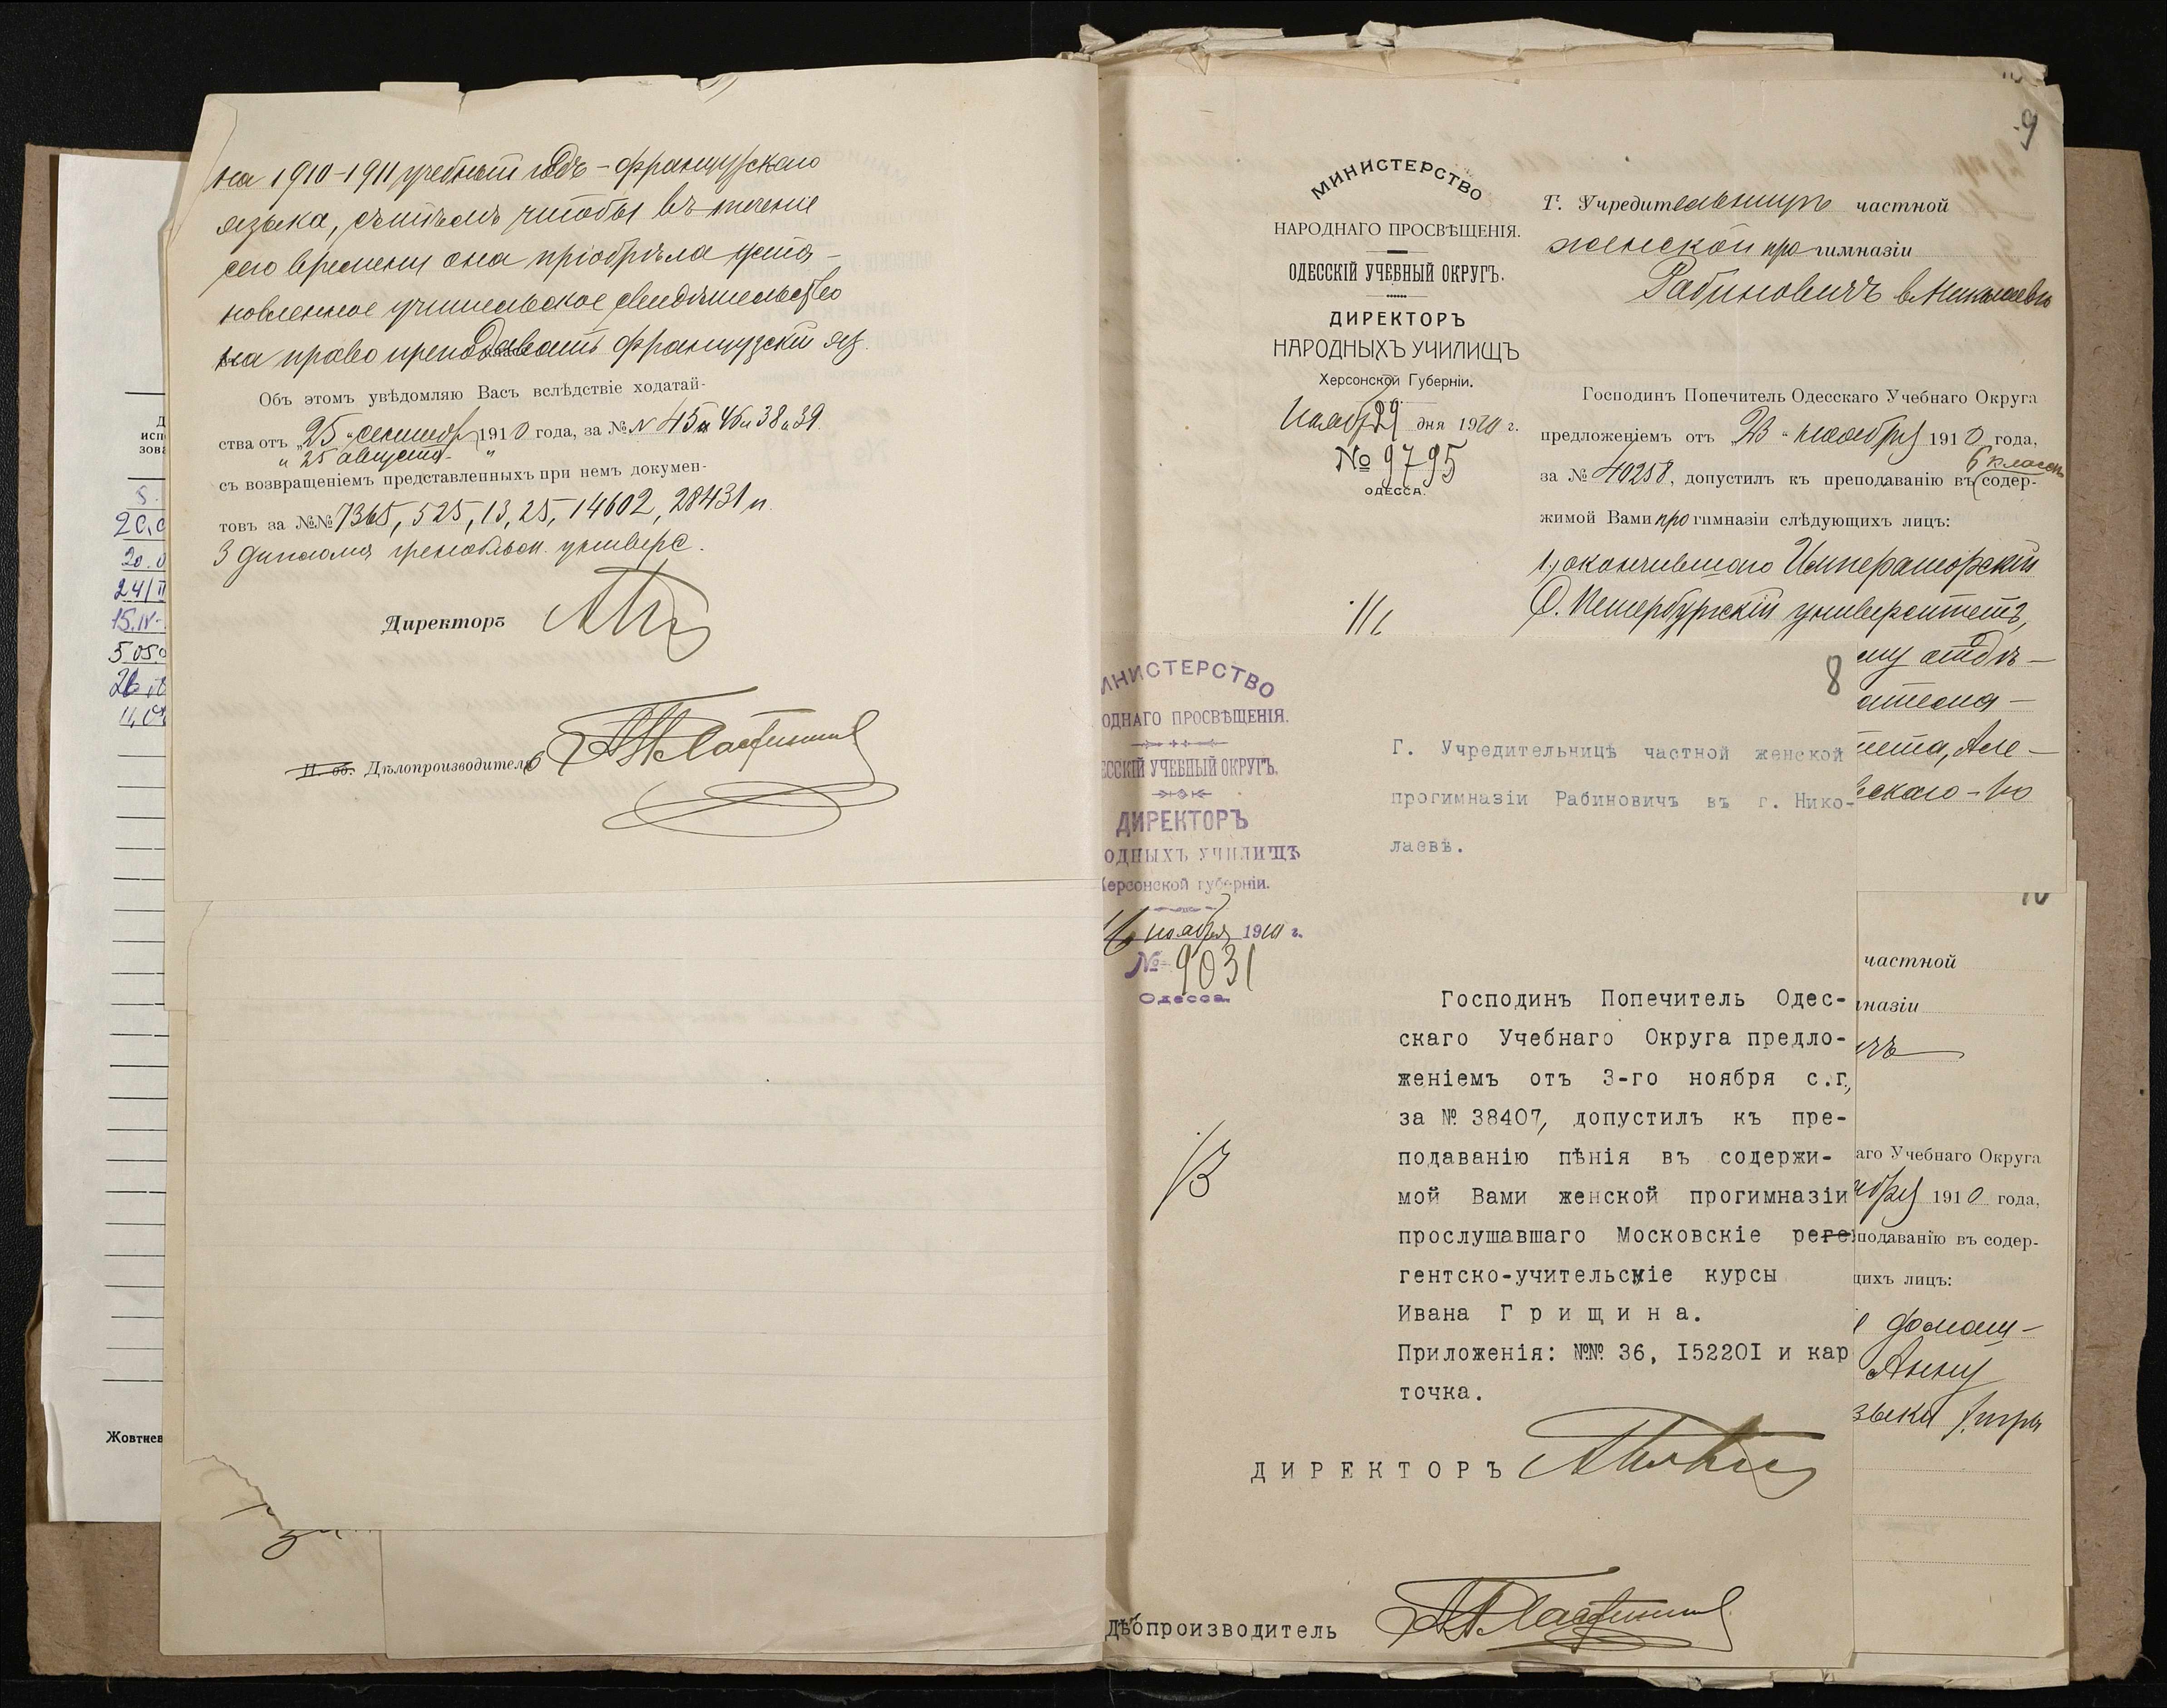 на 1910-1911 учебный годъ - французскаго
языка, съ тѣмъ чтобы въ теченіе
сего времени она пріобрѣла уста-
новленное учительское свидѣтельство
на право преподавать французскій яз.
Объ этомъ увѣдомляю Васъ вслѣдствіе ходатай-
ства отъ „25 " сентябр 1910 года, за №№ 45 и 46 и 38 и 39
и 25 августа
съ возвращеніемъ представленныхъ при немъ докумен-
товъ за №№ 7365, 525, 13, 25, 14602, 28431 и
3 диплома гренобльск. универс.
Директоръ
И. об. Дѣлопроизводитель
Д
исп
зова
20.0
24/II
15.IV
Жовтнев
9
МИНИСТЕРСТВО
НАРОДНАГО ПРОСВѢЩЕНІЯ.
ОДЕССКІЙ УЧЕБНЫЙ ОКРУГЪ.
ДИРЕКТОРЪ
НАРОДНЫХЪ УЧИЛИЩЪ
Херсонской Губерніи.
Ноября 29 дня 1910 г.
№ 9795
ОДЕССА.
Г. Учредительницѣ частной
женской прогимназіи
Рабиновичъ в. Николаевѣ
Господинъ Попечитель Одесскаго Учебнаго Округа
предложеніемъ отъ „23 " ноября 1910 года,
6 классн.
за № 40258, допустилъ къ преподаванію въ содер-
жимой Вами прогимназіи слѣдующихъ лицъ:
1, окончившаго Императорскій
С. Петербургскій университетъ,
ому отдѣ-
атема-
тета, Але-
вскаго - по
8
МИНИСТЕРСТВО
ОДНАГО ПРОСВѢЩЕНІЯ.
ЕССКІЙ УЧЕБНЫЙ ОКРУГЪ.
ДИРЕКТОРЪ
ОДНЫХЪ УЧИЛИЩЪ
Херсонской губерніи.
16 ноября 1910 г.
№ 9031
Одесса.
Г. Учредительницѣ частной женской
прогимназіи Рабиновичъ въ г. Нико-
лаевѣ.
Господинъ Попечитель Одес-
скаго Учебнаго Округа предло-
женіемъ отъ 3-го ноября с.г,
за № 38407, допустилъ къ пре-
подаванію пѣнія въ содержи-
мой Вами женской прогимназіи
прослушавшаго Московскіе реге
гентско-учительскіе курсы
Ивана Грищина.
Приложенія: №№ 36, 152201 и кар
точка.
ДИРЕКТОРЪ
Дѣлопроизводитель
10
частной
назіи
ичъ
аго Учебнаго Округа
ября 1910 года,
подаванію въ содер-
щихъ лицъ:
домаш-
Анну
языка